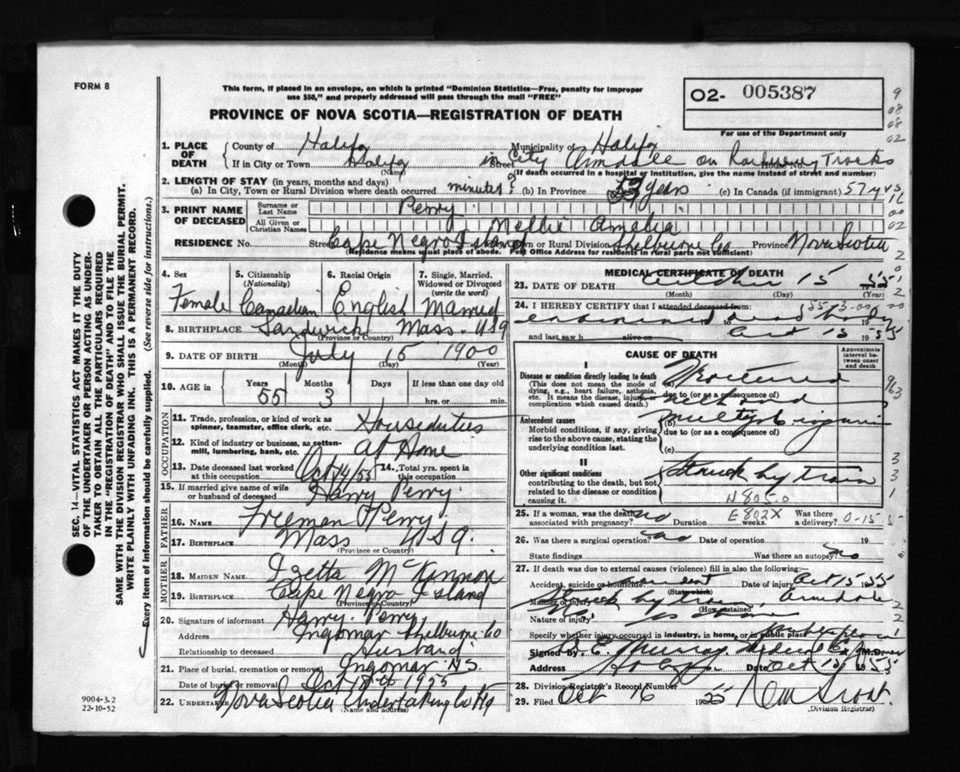 FORM 8
This form, if placed in an envelope, on which is printed "Dominion Statistics—Free, penalty for improper
use $50," and properly addressed will pass through the mail "FREE"
O2- 005387
For use of the Department only
PROVINCE OF NOVA SCOTIA—REGISTRATION OF DEATH
1. PLACE OF DEATH
County of Halifax
Municipality of Halifax
If in City or Town Halifax in City Armdale on Railway Tracks
(Name)
Street
(If death occurred in a hospital or institution, give the name instead of street and number)
2. LENGTH OF STAY (in years, months and days)
(a) In City, Town or Rural Division where death occurred minutes (b) In Province years (c) In Canada (if immigrant) 57 yrs
3. PRINT NAME OF DECEASED
Surname or Last Name Perry
All Given or Christian Names Nellie Amelia
RESIDENCE No. Street Cape Negro Island Town or Rural Division Shelburne Co Province Nova Scotia
(Residence means usual place of abode. Post Office Address for residents in rural parts not sufficient)
4. Sex
Female
5. Citizenship
(Nationality)
Canadian
6. Racial Origin
English
7. Single, Married, Widowed or Divorced
(write the word)
Married
8. BIRTHPLACE Sandwich Mass. USA
(Province or Country)
9. DATE OF BIRTH July 15 1900
(Month) (Day) (Year)
10. AGE in Years Months Days If less than one day old
55 3 hrs. or min.
OCCUPATION
11. Trade, profession, or kind of work as
spinner, teamster, office clerk, etc. Houseduties
12. Kind of industry or business, as cotton-
mill, lumbering, bank, etc. At Home
13. Date deceased last worked
at this occupation Oct 14/55 14. Total yrs. spent in
this occupation
15. If married give name of wife
or husband of deceased Harry Perry
FATHER
16. NAME Freeman Perry
17. BIRTHPLACE Mass USA.
(Province or Country)
MOTHER
18. MAIDEN NAME Izetta McKinnon
19. BIRTHPLACE Cape Negro Island
(Province or Country)
20. Signature of informant Harry Perry
Address Ingomar Shelburne Co
Relationship to deceased Husband
21. Place of burial, cremation or removal Ingomar N.S.
Date of burial or removal Oct 18th 1955
22. UNDERTAKER Nova Scotia Undertaking Co Hfx
(Name and address)
MEDICAL CERTIFICATE OF DEATH
23. DATE OF DEATH October 15 1955
(Month) (Day) (Year)
24. I HEREBY CERTIFY that I attended deceased from:
examined dead body
and last saw h alive on Oct 15 1955
CAUSE OF DEATH
Approximate interval between onset and death
I
Disease or condition directly leading to death
(This does not mean the mode of
dying, e.g., heart failure, asthenia,
etc. It means the disease, injury or
complication which caused death.)
(a) Fractured
due to (or as a consequence of)
Antecedent causes
Morbid conditions, if any, giving
rise to the above cause, stating the
underlying condition last.
(b) multiple injuries
due to (or as a consequence of)
(c)
II
Other significant conditions
contributing to the death, but not
related to the disease or condition
causing it.
Struck by train
N805.0
25. If a woman, was the death
associated with pregnancy? no Duration weeks. Was there
a delivery?
E802X
0-15
26. Was there a surgical operation? no Date of operation 19
State findings Was there an autopsy? no
27. If death was due to external causes (violence) fill in also the following:—
Accident, suicide or homicide? accident Date of injury Oct 15 1955
Manner of injury Struck by train, Armdale
(How sustained)
Nature of injury
Specify whether injury occurred in industry, in home, or in public place public place
Signed by Murray Medical Ex M.D.
Address Halifax Date Oct 1955
28. Division Registrar's Record Number
29. Filed Oct 16 1955
(Division Registrar)
SEC. 14—VITAL STATISTICS ACT MAKES IT THE DUTY
OF THE UNDERTAKER OR PERSON ACTING AS UNDER-
TAKER TO OBTAIN ALL THE PARTICULARS REQUIRED
IN THE "REGISTRATION OF DEATH" AND TO FILE THE
SAME WITH THE DIVISION REGISTRAR WHO SHALL ISSUE THE BURIAL PERMIT.
WRITE PLAINLY WITH UNFADING INK. THIS IS A PERMANENT RECORD.
Every item of information should be carefully supplied. (See reverse side for instructions.)
9004-3.2
22-10-52